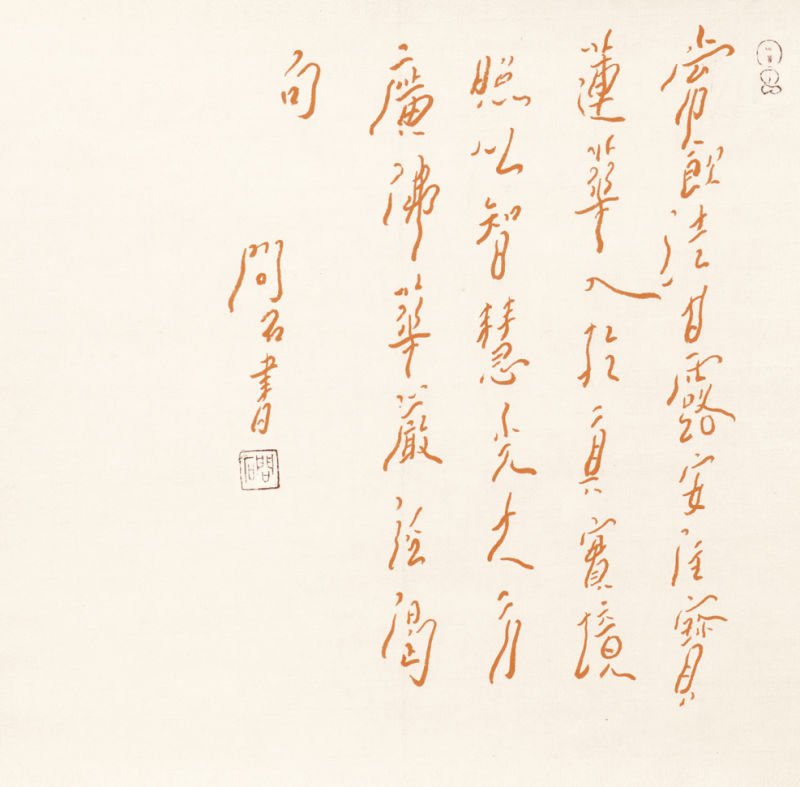 常飲法甘露安住寶
蓮華入於真實境
照以智慧光大方
廣佛華嚴經偈
句
問石書
問石